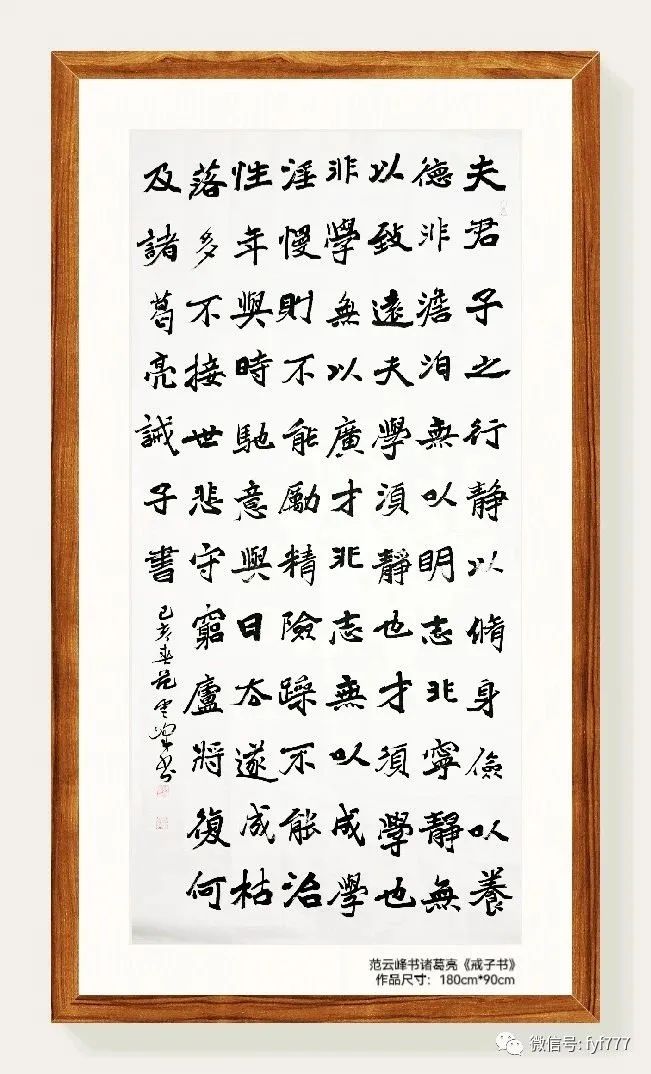 夫君子之行靜以脩身儉以養
德非澹泊無以明志非寧靜無
以致遠夫學須靜也才須學也
非學無以廣才非志無以成學
淫慢則不能勵精險躁不能治
性年與時馳意與日去遂成枯
落多不接世悲守窮廬將復何
及諸葛亮誡子書
己亥春范雲峰書
范云峰书诸葛亮《戒子书》
作品尺寸：180cm*90cm
微信号: fyf777